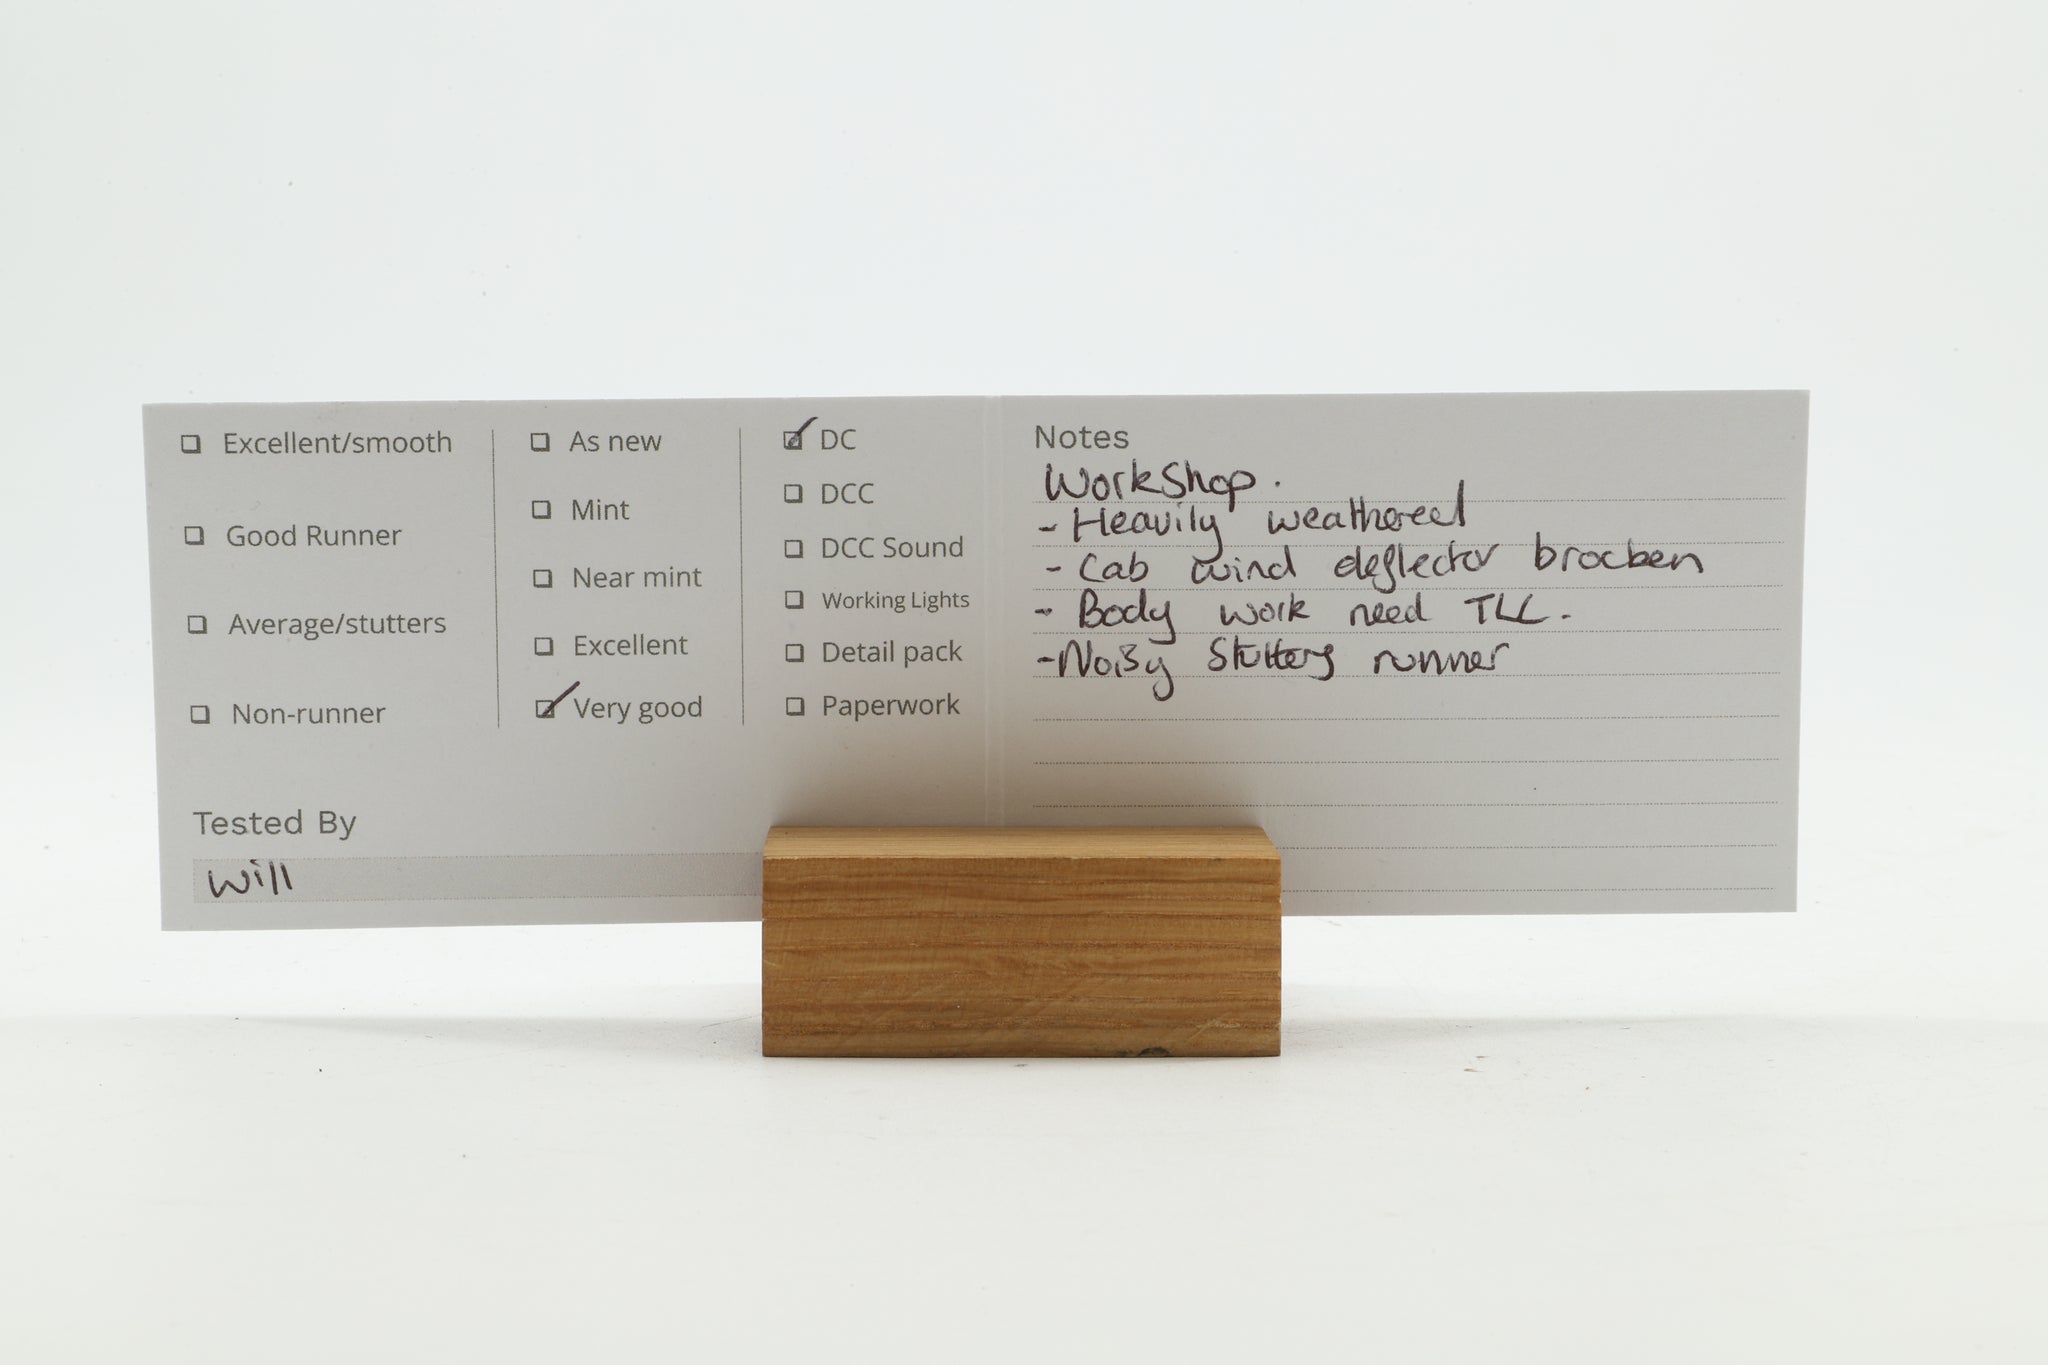 Excellent/smooth
Good Runner
Average/stutters
Non-runner
As new
Mint
Near mint
Excellent
Very good
DC
DCC
DCC Sound
Working Lights
Detail pack
Paperwork
Tested By
Will
Notes
Workshop.
- Heavily weathered
- Cab wind deflector brocken
- Body work need TLC.
- Noisy Stuttery runner